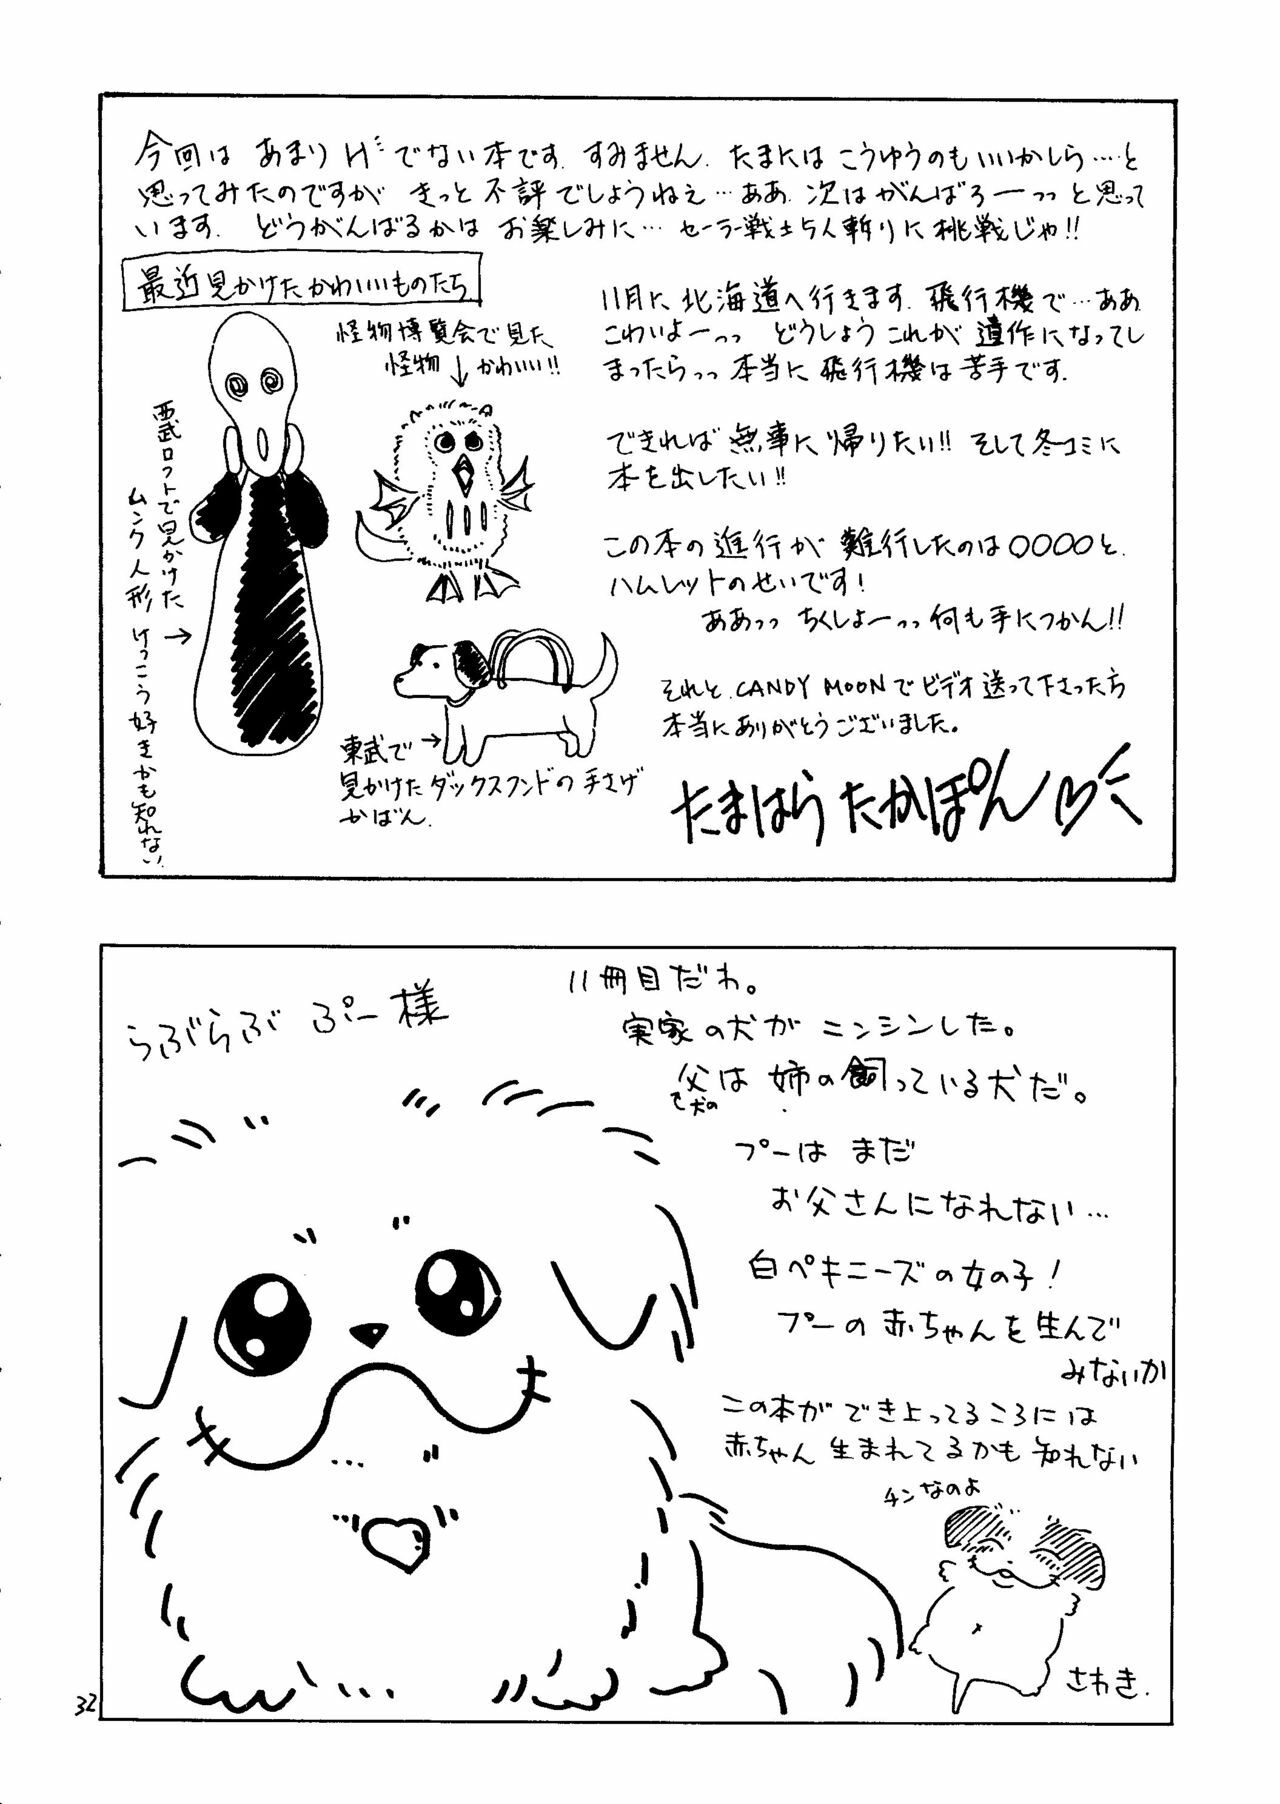 今回は あまり Hミでない本です. すみません. たまには こうゆうのもいいかしら…と
思ってみたのですが きっと 不評でしょうねえ…ああ 次はがんばろーっっと思って
います. どうがんばるかは お楽しみに… セーラー戦士5人斬りに挑戦じゃ!!
最近見かけたかわいいものたち
怪物博覧会で見た
怪物↓かわいい!!
西武ロフトで見かけた
ムンク人形 けっこう好きかも知れない.
東武で→
見かけたダックスフンドの手さげ
かばん.
11月に北海道へ行きます. 飛行機で…ああ
こわいよーっっ どうしょう これが 遺作になってし
まったらっっ本当に飛行機は苦手です.
できれば 無事に帰りたい!! そして冬コミに
本を出したい!!
この本の進行が 難行したのは○○○○と.
ハムレットのせいです!
ああっっ ちくしょーっっ何も手につかん!!
それと. CANDY MOONでビデオ送って下さった方
本当にありがとうございました。
たまはら たかぽん
らぶらぶ ぷー様
11冊目だわ。
実家の犬が ニンシンした。
父は 姉の飼っている犬だ。
犬の
プーは まだ
お父さんになれない…
白ペキニーズの女の子!
プーの赤ちゃんを生んで
みないか
この本ができ上ってるころには
赤ちゃん 生まれてるかも 知れない
チンなのよ
さわき.
32